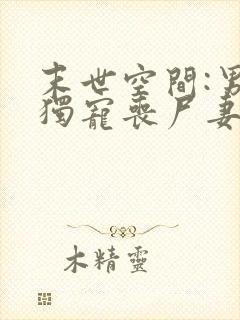 末世空間:男
獨寵喪尸妻
木精靈